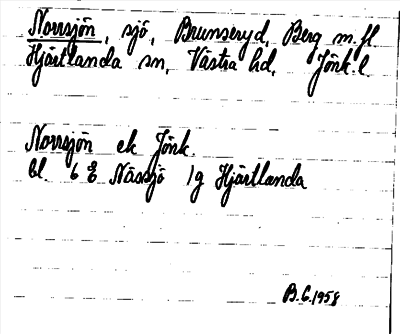 Norrsjön, sjö, Brunseryd, Berg m.fl
Hjärtlanda sn, Västra hd, Jönk.l.
Norrsjön ek Jönk.
bl. 6 E Nässjö 1g Hjärtlanda
B.G.1958